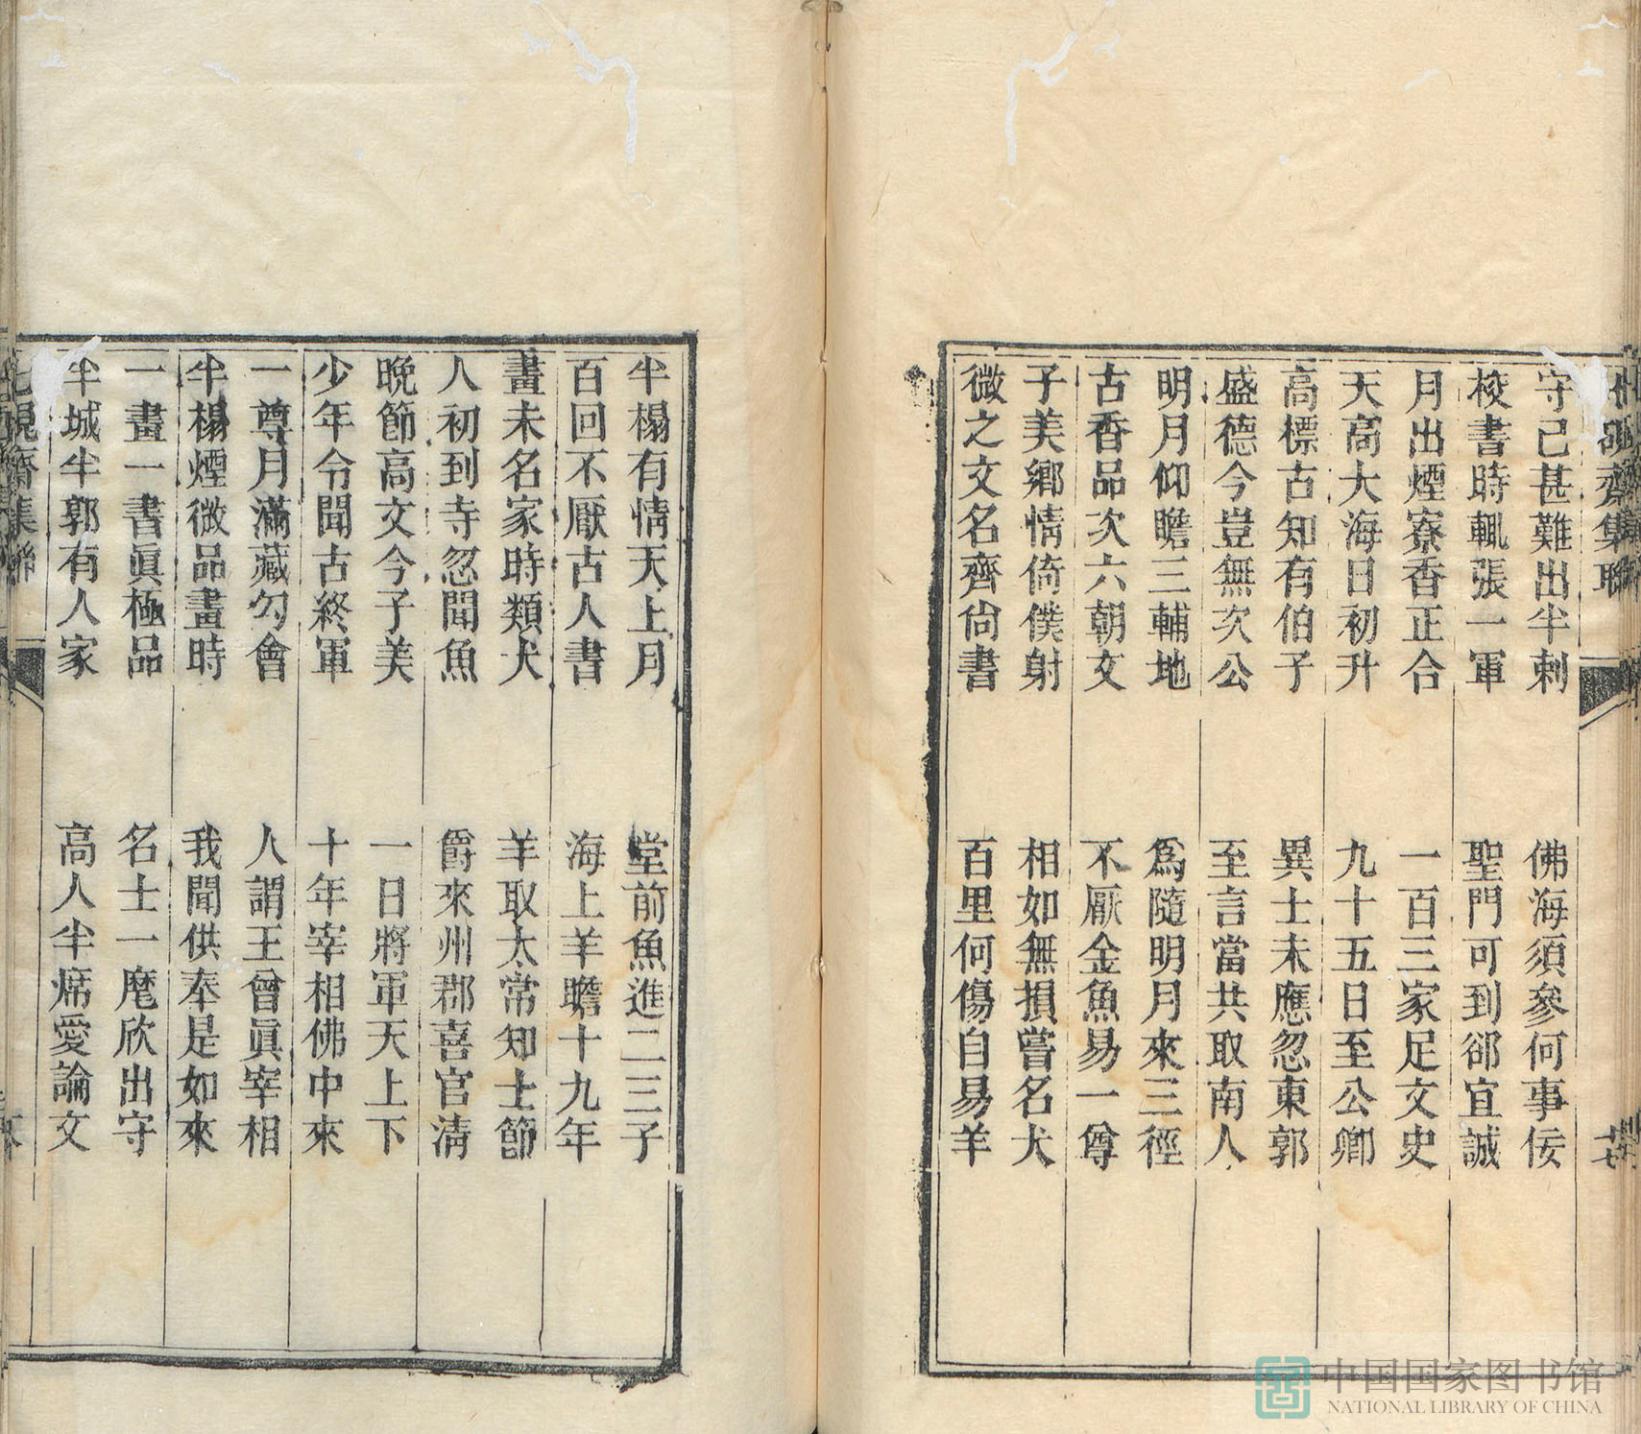 守己甚難出半剌
佛海須參何事佞
校書時輒張一軍
聖門可到郤宜誠
月出煙寮香正合
一百三家足文史
天高大海日初升
九十五日至公卿
高標古知有伯子
異士未應忽東郭
盛德今豈無次公
至言當共取南人
明月仰瞻三輔地
爲隨明月來三徑
古香品次六朝文
不厭金魚易一尊
子美鄉情倚僕射
相如無損嘗名犬
微之文名齊尙書
百里何傷自易羊
半榻有情天上月
堂前魚進二三子
百回不厭古人書
海上羊瞻十九年
畫未名家時類犬
羊取太常知士節
人初到寺忽聞魚
爵來州郡喜官清
晚節高文今子美
一日將軍天上下
少年令聞古終軍
十年宰相佛中來
一尊月滿藏勾會
人謂王曾眞宰相
半榻煙微品畫時
我聞供奉是如來
一畫一書眞極品
名士一麾欣出守
半城半郭有人家
高人半席愛論文
中国国家图书馆
NATIONAL LIBRARY OF CHINA